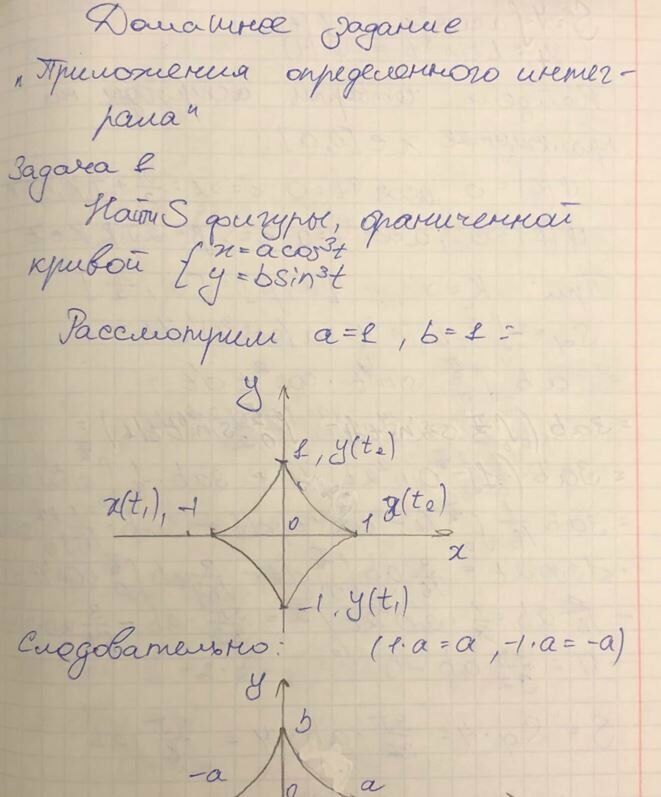 Домашнее задание
"Приложения определенного интег-
рала"
Задача 1
Найти S фигуры, ограниченной
кривой { x = a cos³t
y = b sin³t
Рассмотрим a = 1 , b = 1 =
y
1 , y(t₂)
x(t₁), -1
0
1
x(t₂)
x
-1, y(t₁)
Следовательно: (1·a = a , -1·a = -a)
y
b
-a
a
0